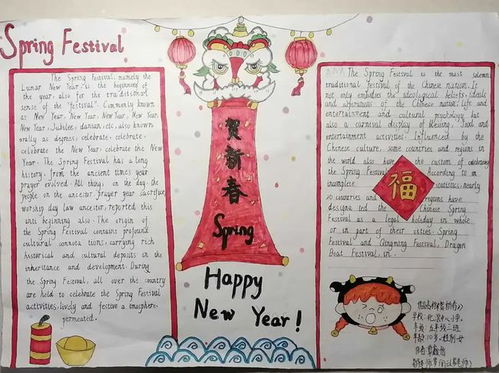 Spring Festival
The Spring Festival, namely the
Lunar New Year, is the beginning of
the year, also for the traditional
sense of the "festival". Commonly known
as New Year, New Year, New Year, New
New Year, Jubilee, danian, etc, also known
orally as degrees, celebrate, celebrate,
celebrate the New Year, celebrate the New
Year. The Spring Festival has a long
history, from the ancient times year
prayer evolved. All things in the day, the
people on the ancestor, prayer year sacrifice
worship day law ancestor, reported this
anti beginning also. The origin of
the Spring Festival contains profound
cultural connotations, carrying rich
historical and cultural deposits in the
inheritance and development. During
the Spring Festival, all over the country
are held to celebrate the Spring Festival
activities, lively and festive atmosphere
permeated.
贺新春
Spring
Happy
New Year!
The Spring Festival is the most solemn
traditional festival of the Chinese nation. It
not only embodies the ideological beliefs, ideals
and aspirations of the Chinese nation, life and
entertainment and cultural psychology, but
also a carnival display of blessing, food and
entertainment activities. Influenced by the
Chinese culture, some countries and regions in
the world also have the custom of celebrating
the Spring Festival. According to
incomplete statistics, nearly
20 countries and regions have
designated the Chinese Spring
Festival as a legal holiday in whole
or in part of their cities. Spring
Festival and Qingming Festival, Dragon
Boat Festival,
福
学校
年级 五年级二班
年龄10岁 性别 女